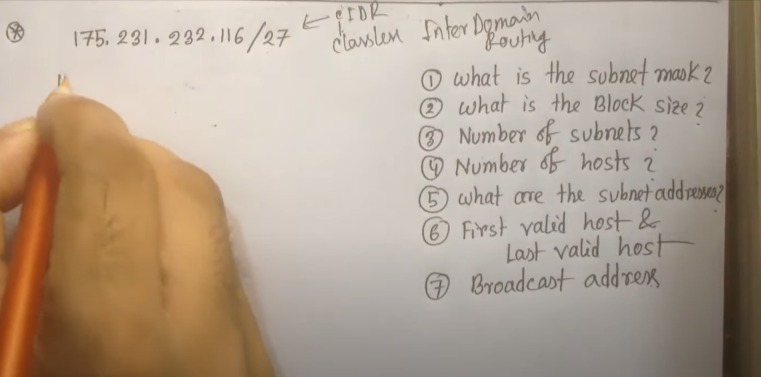 175.231.232.116/27 ← CIDR
classless Inter Domain
Routing
① what is the subnet mask?
② what is the Block size?
③ Number of subnets?
④ Number of hosts?
⑤ what are the subnet addresses?
⑥ First valid host &
Last valid host
⑦ Broadcast address